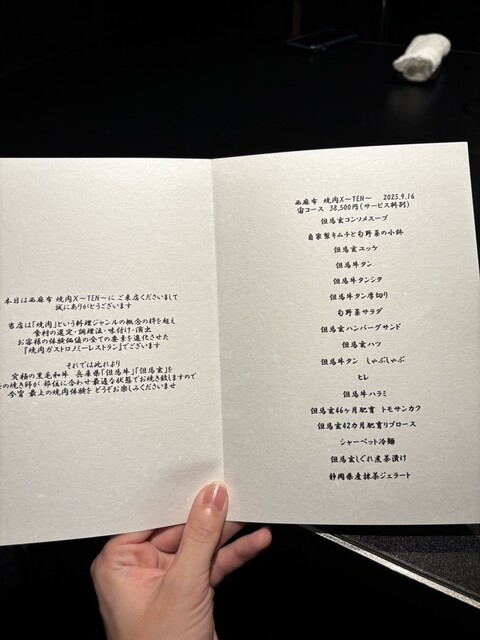 本日は西麻布 焼肉X~TEN~に ご来店くださいまして
誠にありがとうございます
当店は「焼肉」という料理ジャンルの概念の枠を超え
食材の選定・調理法・味付け・演出
お客様の体験価値の全ての要素を進化させた
『焼肉ガストロノミーレストラン』でございます
それでは此れより
究極の黒毛和牛 兵庫県「但馬牛」「但馬玄」を
の焼き師が 部位に合わせ最適な状態でお焼き致しますので
今宵 最上の焼肉体験を どうぞお楽しみくださいませ
西麻布 焼肉X~TEN~ 2025.9.16
宙コース 38,500円(サービス料別)
但馬玄コンソメスープ
自家製キムチと旬野菜の小鉢
但馬玄ユッケ
但馬牛タン
但馬牛タンシタ
但馬牛タン厚切り
旬野菜サラダ
但馬玄ハンバーグサンド
但馬玄ハツ
但馬牛タン しゃぶしゃぶ
ヒレ
但馬牛ハラミ
但馬玄46ヶ月肥育 トモサンカク
但馬玄42カ月肥育リブロース
シャーベット冷麺
但馬玄しぐれ煮茶漬け
静岡県産抹茶ジェラート